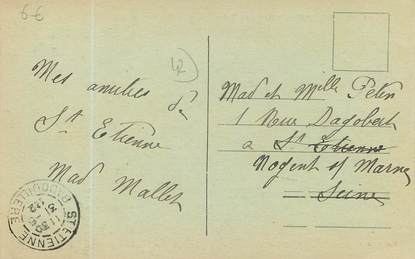 6€
Mes amitiés de
St Etienne
Mad Mallet
12
Mad et Melle Petin
1 Rue Dagobert
a St Etienne
Nogent s/ Marne
Seine
ST ETIENNE
BADOUILLERE